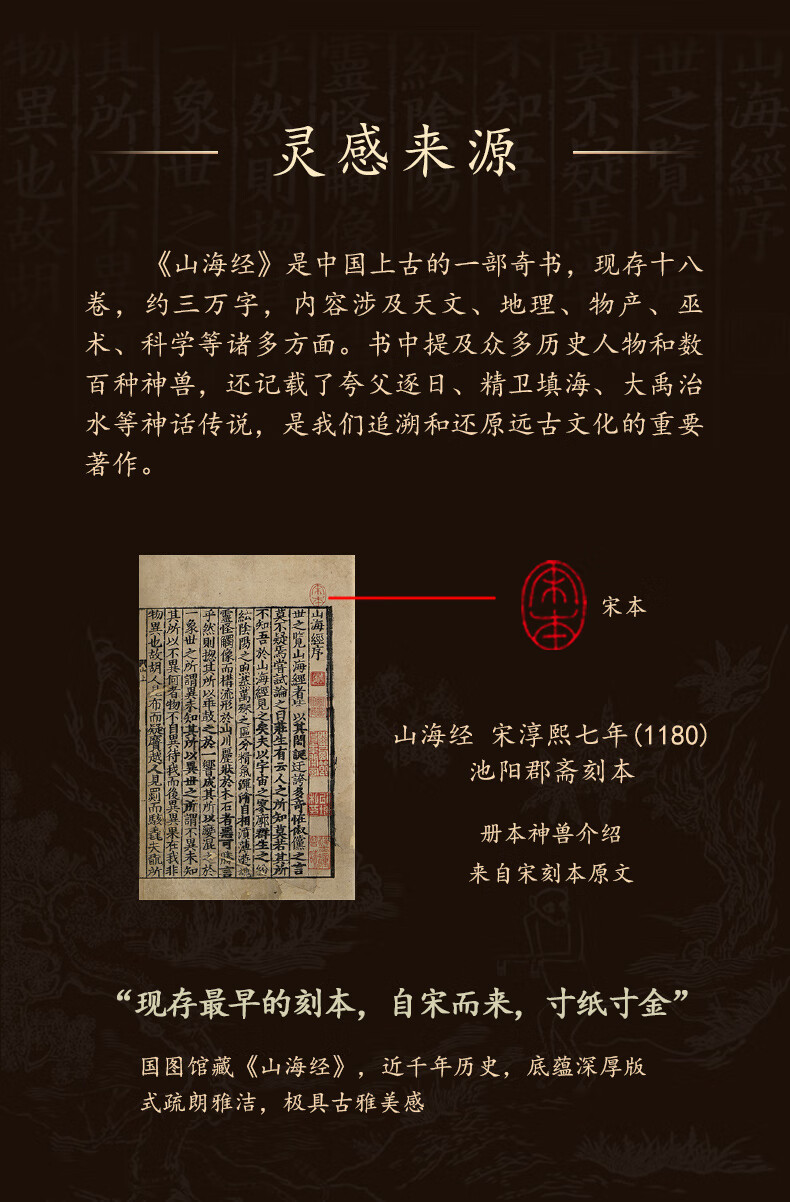 灵感来源
《山海经》是中国上古的一部奇书，现存十八
卷，约三万字，内容涉及天文、地理、物产、巫
术、科学等诸多方面。书中提及众多历史人物和数
百种神兽，还记载了夸父逐日、精卫填海、大禹治
水等神话传说，是我们追溯和还原远古文化的重要
著作。
山海經序
世之覽山海經者皆以其閎誕迂誇多奇怪俶儻之言
莫不疑焉嘗試論之曰莊生有云人之所知莫若其所
不知吾於山海經見之矣夫以宇宙之寥廓羣生之紛
紜陰陽之煦蒸萬殊之區分精氣渾淆自相濆薄遊魂
靈怪觸像而構流形於山川麗狀於木石者惡可勝言
乎然則總其所以乖鼓之於一響成其所以變混之於
一象世之所謂異未知其所以異世之所謂不異未知
其所以不異何者物不自異待我而後異異果在我非
物異也故胡人見布而疑黂越人見罽而駭毳夫翫所
宋本
宋本
山海经 宋淳熙七年(1180)
池阳郡斋刻本
册本神兽介绍
来自宋刻本原文
“现存最早的刻本，自宋而来，寸纸寸金”
国图馆藏《山海经》，近千年历史，底蕴深厚版
式疏朗雅洁，极具古雅美感